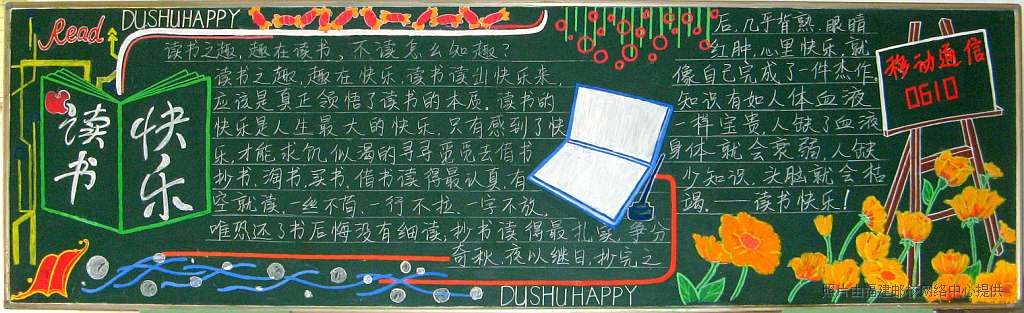 Read
DUSHUHAPPY
读书
快乐
读书之趣,趣在读书、不读怎么知趣?
读书之趣,趣在快乐、读书读出快乐来,
应该是真正领悟了读书的本质。读书的
快乐是人生最大的快乐、只有感到了快
乐,才能求饥似渴的寻寻觅觅去借书
抄书、淘书、买书、借书读得最认真、有
空就读、一丝不苟、一行不拉、一字不放,
唯恐还了书后悔没有细读;抄书读得最扎实、争分
夺秒、夜以继日、抄完之
后,几乎背熟、眼睛
红肿、心里快乐、就
像自己完成了一件杰作。
知识有如人体血液
一样宝贵,人缺了血液
身体就会衰弱、人缺
少知识、头脑就会枯
竭。——读书快乐!
DUSHUHAPPY
移动通信
0610
照片由福建邮材网络中心提供